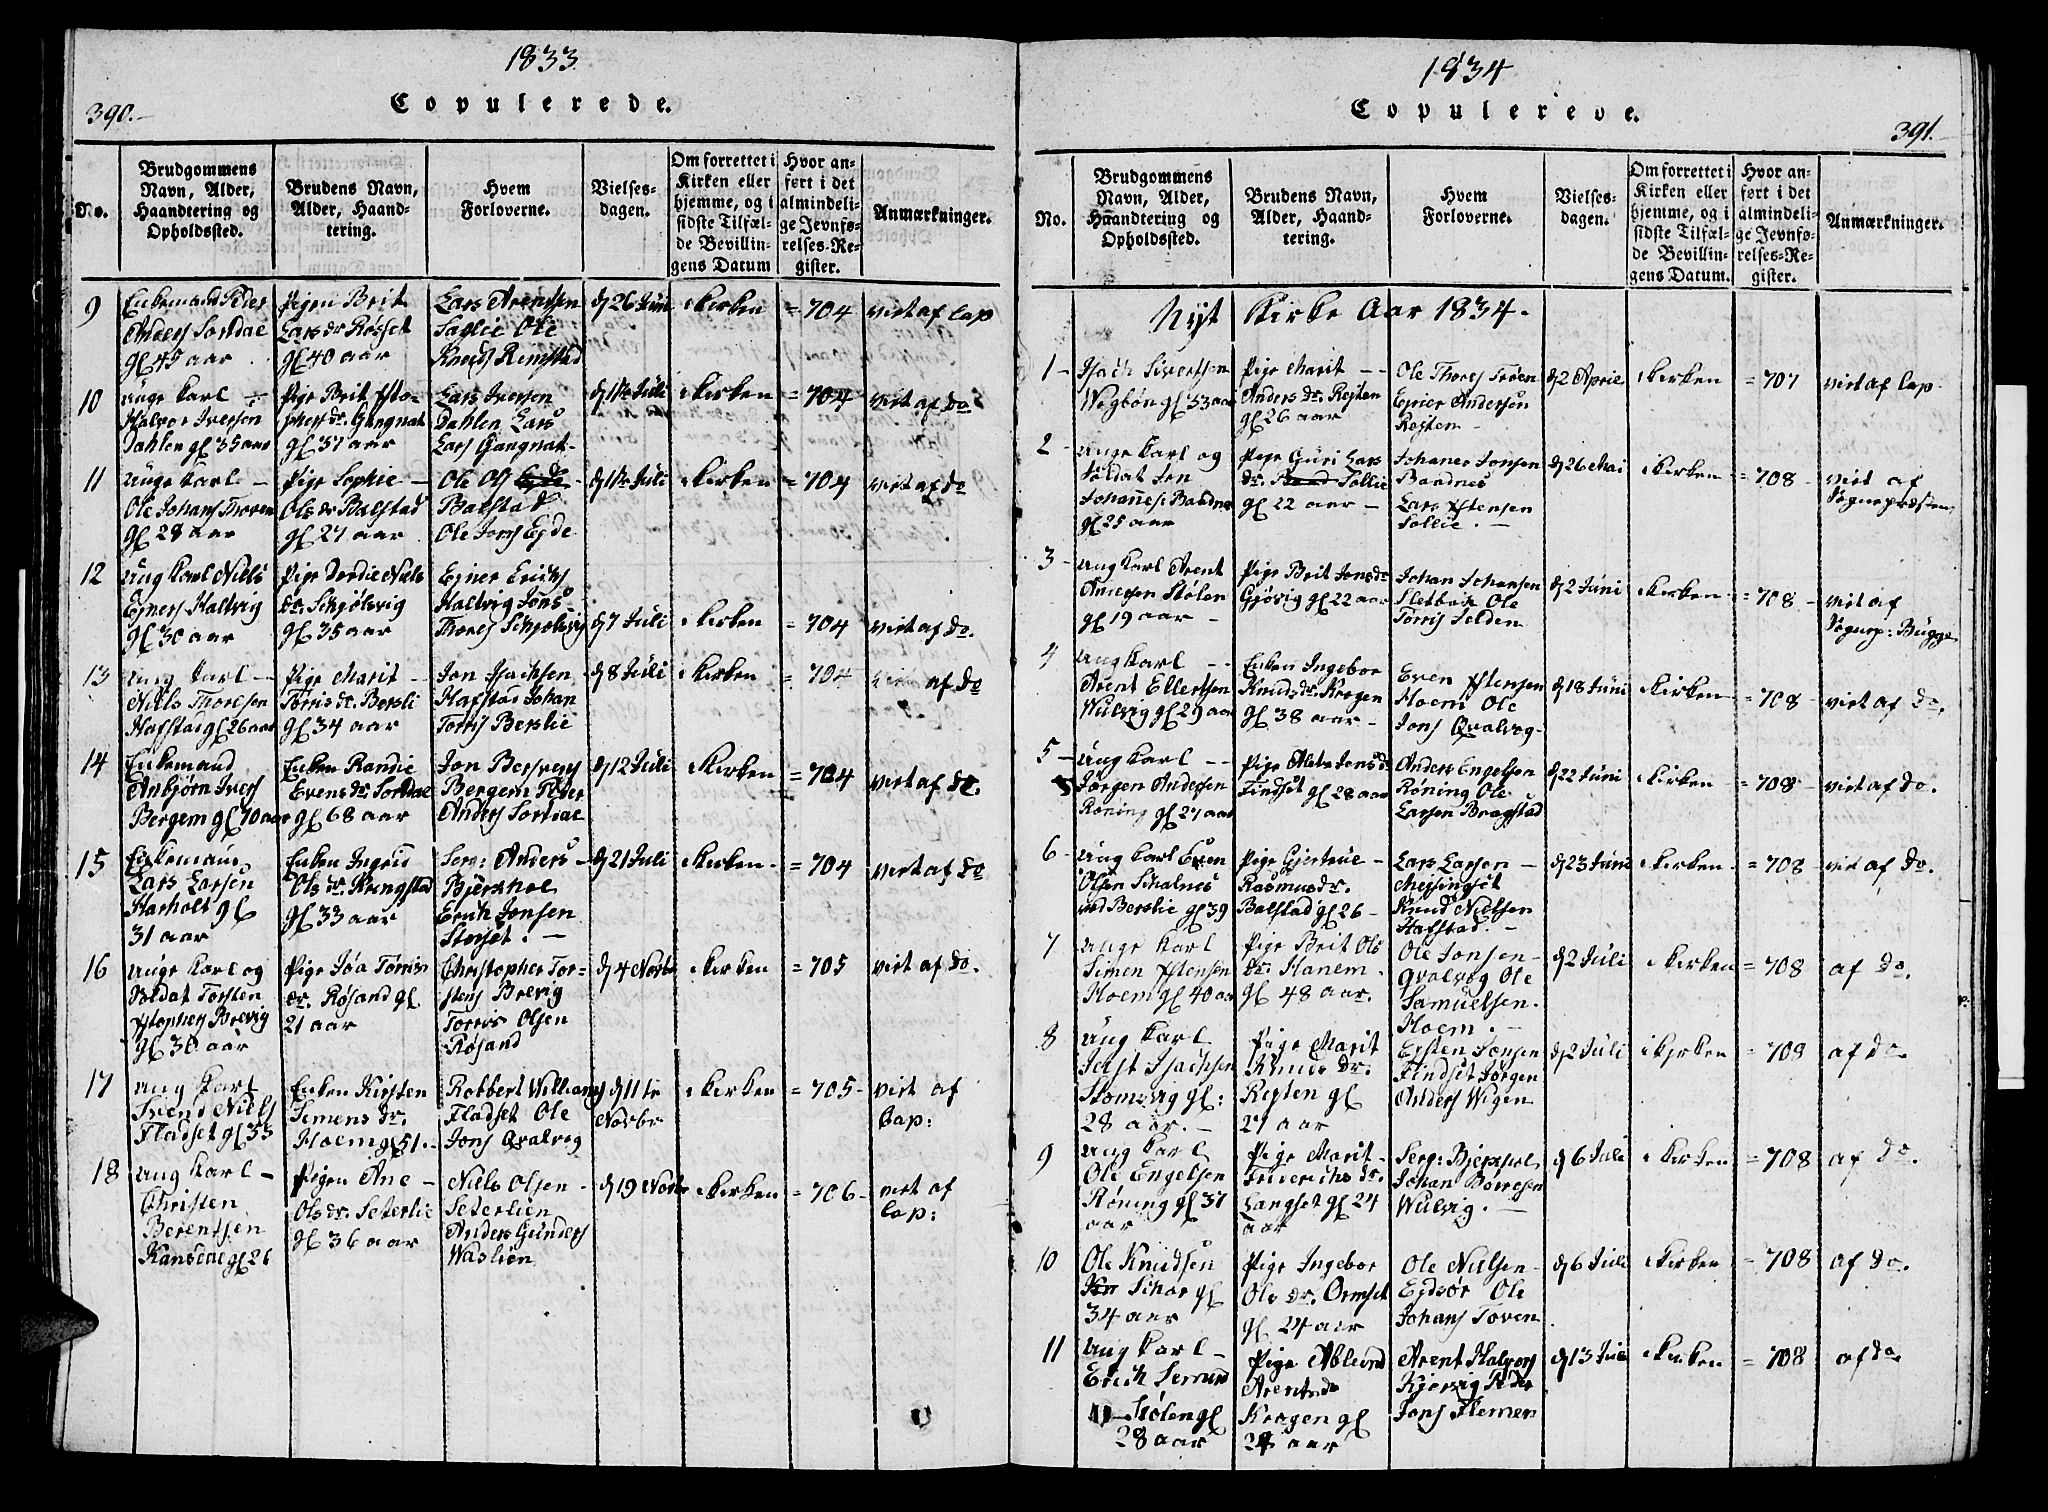 1833
390.-
Copulerede.
No.
Brudgommens
Navn, Alder,
Haandtering og
Opholdssted.
Brudens Navn,
Alder, Haand-
tering.
Hvem
Forloverne.
Vielses-
dagen.
Om forrettet i
Kirken eller
hjemme, og i
sidste Tilfæl-
de Bevillin-
gens Datum
Hvor an-
ført i det
almindeli-
ge Jevnfø-
relses-Re-
gister.
Anmærkninger.
9
Enkemand Peder
Anders Sordal
gl 45 aar
Pigen Brit
Lars dr Røsset
gl 40 aar
Lars Arentsen
Saglie Ole
Knuds Remstad
d 26 Juni
i Kirken
= 704
viet af Cap
10
Unge Karl
Halvor Iversen
Dahlen gl 35 aar
Pige Brit
dr. Gangnat
gl 37 aar
Lars Iversen
Dahlen Lars
Lars Gangnat
d 1 Juli
i Kirken
= 704
viet af do
11
Unge Karl -
Ole Johans Thoven
gl 28 aar
Pige Sophie -
Ols dr Balstad
gl 27 aar
Ole Ols
Balstad
Ole Jons Eyde
d 1 Juli
i Kirken
= 704
viet af do
12
Ung Karl Niels
Ejners Haltvig
gl 30 aar
Pige Dordie Niels
dr. Schjølsvig
gl 35 aar
Ejner Erichs
Haltvig Jøns
Thores Schjølsvig
d 7 Juli
i Kirken
= 704
viet af do.
13
Ung Karl -
Niels Thoresen
Hafstad gl 26 aar
Pige Marit -
Torris dr. Bersli
gl 34 aar
Jon Isachsen
Hafstad Johan
Torris Berslie
d 8 Juli
i Kirken
= 704
viet af do
14
Enkemand
Anbjørn Ivers
Bergem gl 70 aar
Enken Randie
Evens dr. Sordal
gl 68 aar
Jon Bersvens
Bergem Peder
Anders Sordal
d 12 Juli
i Kirken
= 704
viet af do.
15
Enkemand
Lars Larsen
Harholt gl
31 aar
Enken Ingrid
Ols dr. Kringstad
gl 33 aar
Serg: Anders -
Bjershol
Erich Jonsen
Storset. -
d 21 Juli
i Kirken -
= 704
viet af do
16
Unge Karl og
Soldat Torsten
Brevig
gl 30 aar
Pige Jøa Torris
dr. Røsand gl
21 aar
Christopher Tor=
stens Brevig
Torris Olsen
Røsand
d 4 Novbr
i Kirken
= 705
viet af do.
17
Ung Karl
Svend Niels
Fladset gl 33
Enken Kirsten
Simens dr.
Hoem gl 51. -
Robbert Williams
Fladset Ole
Jons Qvalvog
d 11te
Novbr
i Kirken
= 705 -
viet af
Cap:
18
Ung Karl -
Christen
Berentsen
Kansdal gl 26
Pigen Ane -
Ols dr. Seterlie
gl 36 aar
Niels Olsen -
Seterlien
Anders Gunders
Waslien
d 19 Novbr
i Kirken
= 706 -
viet af
Cap:
1834
Copulerede.
391.
No.
Brudgommens
Navn, Alder,
Haandtering og
Opholdssted.
Brudens Navn,
Alder, Haand-
tering.
Hvem
Forloverne.
Vielses-
dagen.
Om forrettet i
Kirken eller
hjemme, og i
sidste Tilfæl-
de Bevillin-
gens Datum.
Hvor an-
ført i det
almindeli-
ge Jevnfø-
relses-Re-
gister.
Anmærkninger.
Nyt Kirke Aar 1834.
1 -
Isach Sivertsen
Wogbøn gl 33 aar
Pige Marit - -
Anders dr. Rejten
gl 26 aar
Ole Thores Trøen
Ejner Andersen
Rejten -
d 2 April
i Kirken
= 707
viet af Cap -
2 -
Unge Karl og
Soldat Jon
Johannes: Baadnes
gl 25 aar
Pige Guri Lars
dr. Sollie
gl 22 aar -
Johanes Jonsen
Baadnes
Lars Istensen
Sollie. -
d 26 Mai
i Kirken
= 708 -
viet af
Sognepræsten
3 -
Ung Karl Arent
Andersen Stølen
gl 19 aar -
Pige Brit Jonsdr
Gjøvig gl 22 aar
Johan Johansen
Sletbak Ole
Torris Selden
d 2 Juni
i Kirken
= 708 -
viet af
Sognep: Bugge
4
Ung Karl - -
Arent Ellertsen
Wulvig gl 29 aar
Enken Ingebor
Knuds dr. Krogen
gl 38 aar -
Even Istensen
Hoem Ole
Jons Qvalvog -
d 18 Juni
i Kirken
= 708 -
viet af do.
5 -
Ung Karl - -
Jørgen Andersen
Røning gl 27 aar
Pige Jons dr
Findset gl 28 aar
Anders Engelsen
Røning Ole
Larsen Bragstad
d 22 Juni
i Kirken
= 708 -
viet af do.
6 -
Ung Karl Even
Olsen Schalnes
ved Berslie gl 39
Pige Gjertrue -
Rasmusdr.
Balstad gl 26 -
Lars Larsen -
Mejsingset
Knud Nielsen
Hafstad. -
d 23 Juni
i Kirken -
= 708 -
viet af do.
7 -
Unge Karl
Simen Istensen
Hoem gl 40 aar
Pige Brit Ols
dr. Hanem -
gl 48 aar.
Ole Jonsen -
Qvalvog Ole
Samuelsen.
Hoem. -
d 2 Juli
i Kirken
= 708 -
af do.
8
Ung Karl
Isachsen
Stomsvig gl:
28 aar. -
Pige Marit
Knuds dr.
Rejten gl
27 aar
Ersten Jonsen
Findset Jørgen
Anders Wigen
d 2 Juli
i Kirken
= 708
af do.
9
Ung Karl
Ole Engelsen
Røning gl 37
aar
Pige Marit -
Friderichs dr.
Langset gl 24
aar
Serg: Bjershol
Johan Borresen
Wulvig. -
d 6 Juli
i Kirken
= 708
af do.
10
Ole Knudsen
Schar gl
34 aar
Pige Ingebor
Ols dr. Ormset
gl 24 aar
Ole Nielsen -
Ejdsør Ole
Johans Toven
d 6 Juli
i Kirken
= 708
af do.
11
Ung Karl -
Erich Semund
Stølen gl
28 aar
Pige Ablund
Arentsdr
Krogen gl
24 aar
Arent Halvors
Kjørvig Peder
Jons Flemen
d 13 Juli
i Kirken
= 708
af do.